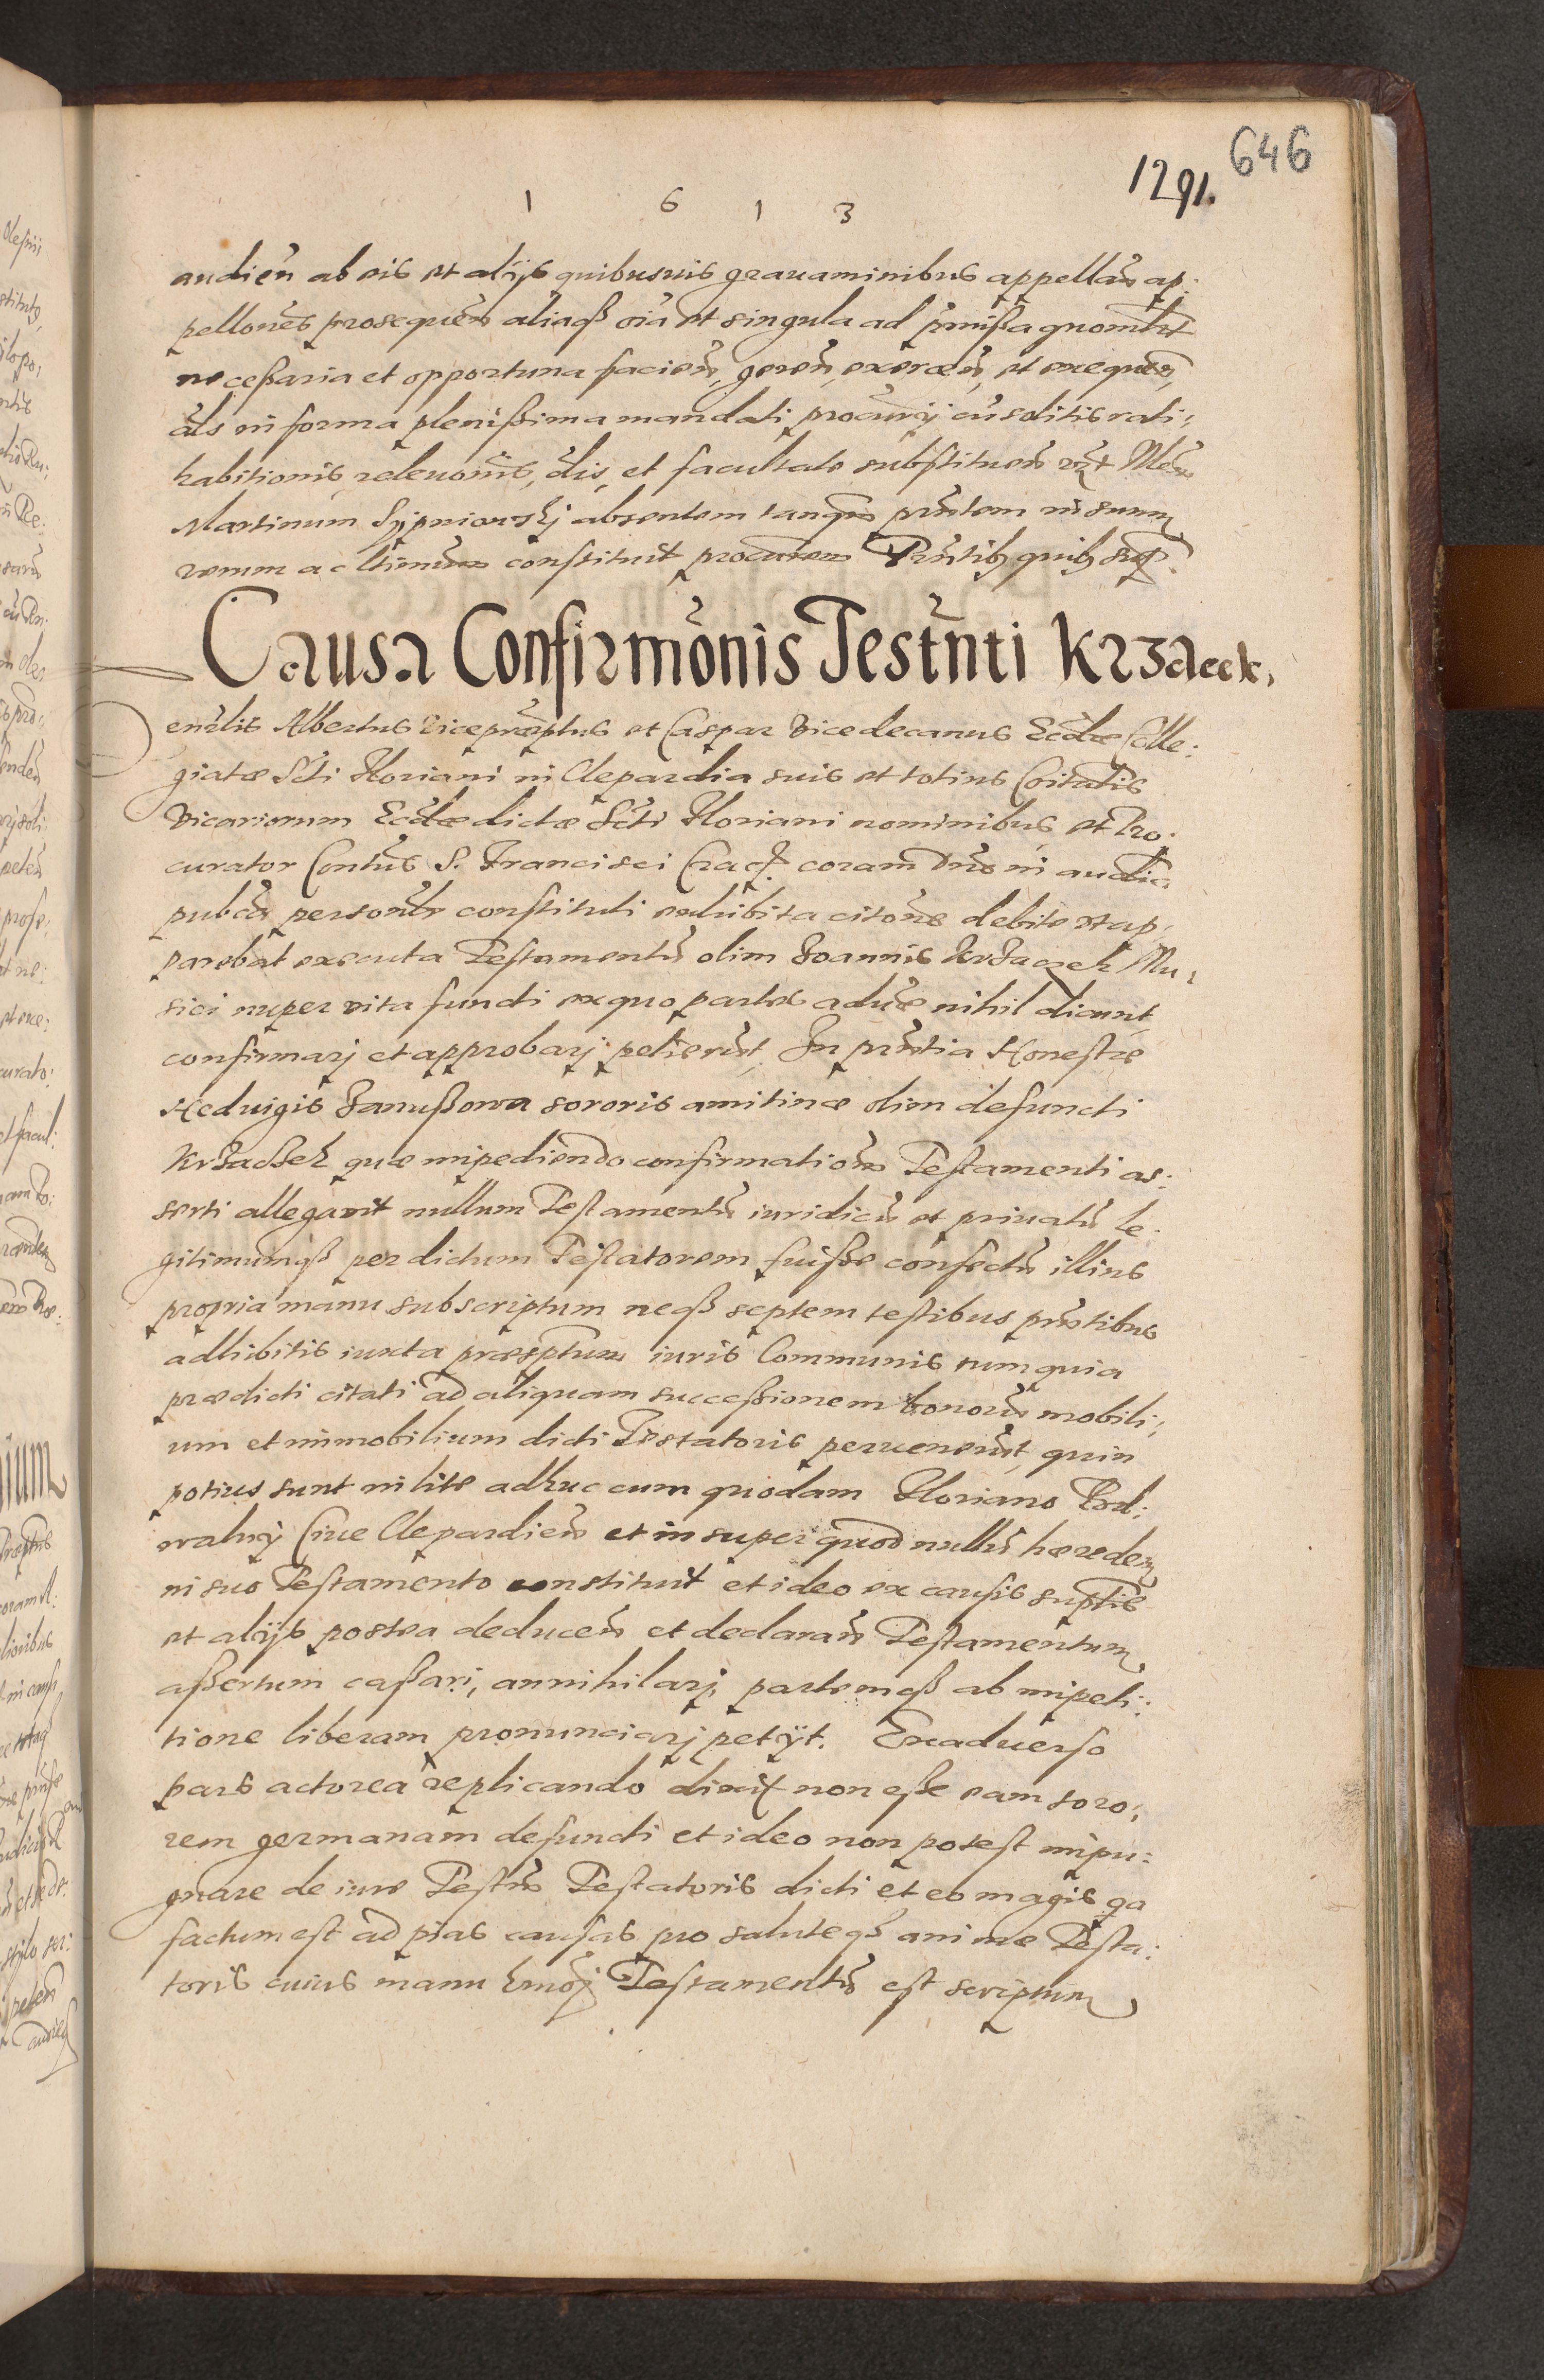 646
1291.
1 6 1 3
audien̄ ab eis et alijs quibusuis grauaminibus appellan̄ ap:
pellones prosequen̄ aliaqȝ oīa et singula ad p̄missa quomlt
necessaria et opportuna facien̄, geren̄, exercen̄, et exequen̄,
als in forma plenissima mandati procurij cū solitis rati,
habitionis releuonis, clis, et facultate substituen̄
Martinum Sypniowskj absentem tanq̄ pn̄tem in suum
verum ac ltimum constituit procurem Pn̄tibȝ quibȝ supȝ.
Causa Confirmōnis Testm̄ti Krzacek.
enrlis Albertus Viceprepptus et Caspar Vicedecanus Eccłæ Colle:
giatæ Scti Floriani in Clepardia suis et totius Coitatis
Vicariorum Eccłæ dictæ Scti Floriani nominibus, et Pro:
curator Contus S. Francisci Cracȝ. coram Dno in audīa
pubca personlr constituti exhibita citone debite vt ap,
parebat executa Testamentū olim Joannis Krzaczek Mu,
sici nuper vita functi ex quo partes aduæ nihil dicunt
confirmarj et approbarj petierūt, In pn̄tia Honestæ
Heduigis Janussowa sororis amitinæ olim defuncti
Krzaczek quæ impediendo confirmationē Testamenti as:
serti allegauit nullum Testamentū iuridicū et priuatū le:
gitimumqȝ per dictum Testatorem fuisse confectū illius
propria manu subscriptum neqȝ septem testibus pn̄tibus
adhibitis iuxta præscptum iuris Communis tum quia
prædicti citati ad aliquam successionem bonorū mobili,
um et immobilium dicti Testatoris peruenerūt, quin
potius sunt in lite adhuc cum quodam Floriano
Ciue Clepardien̄ et insuper quod nullū hæredem
in suo Testamento constituit et ideo ex causis suptis
et alijs postea deducen̄ et declaran̄ Testamentum
assertum cassari, annihilarj, partemqȝ ab impeti:
tione liberam pronunciarj petijt. Exaduerso
pars actorea replicando dixit non esse eam soro,
rem germanam defuncti et ideo non potest impu:
gnare de iure Testm̄ Testatoris dicti et eo magis qa
factum est ad pias causas pro saluteqȝ animæ Testa:
toris cuius manu hmoj Testamentū est scriptum